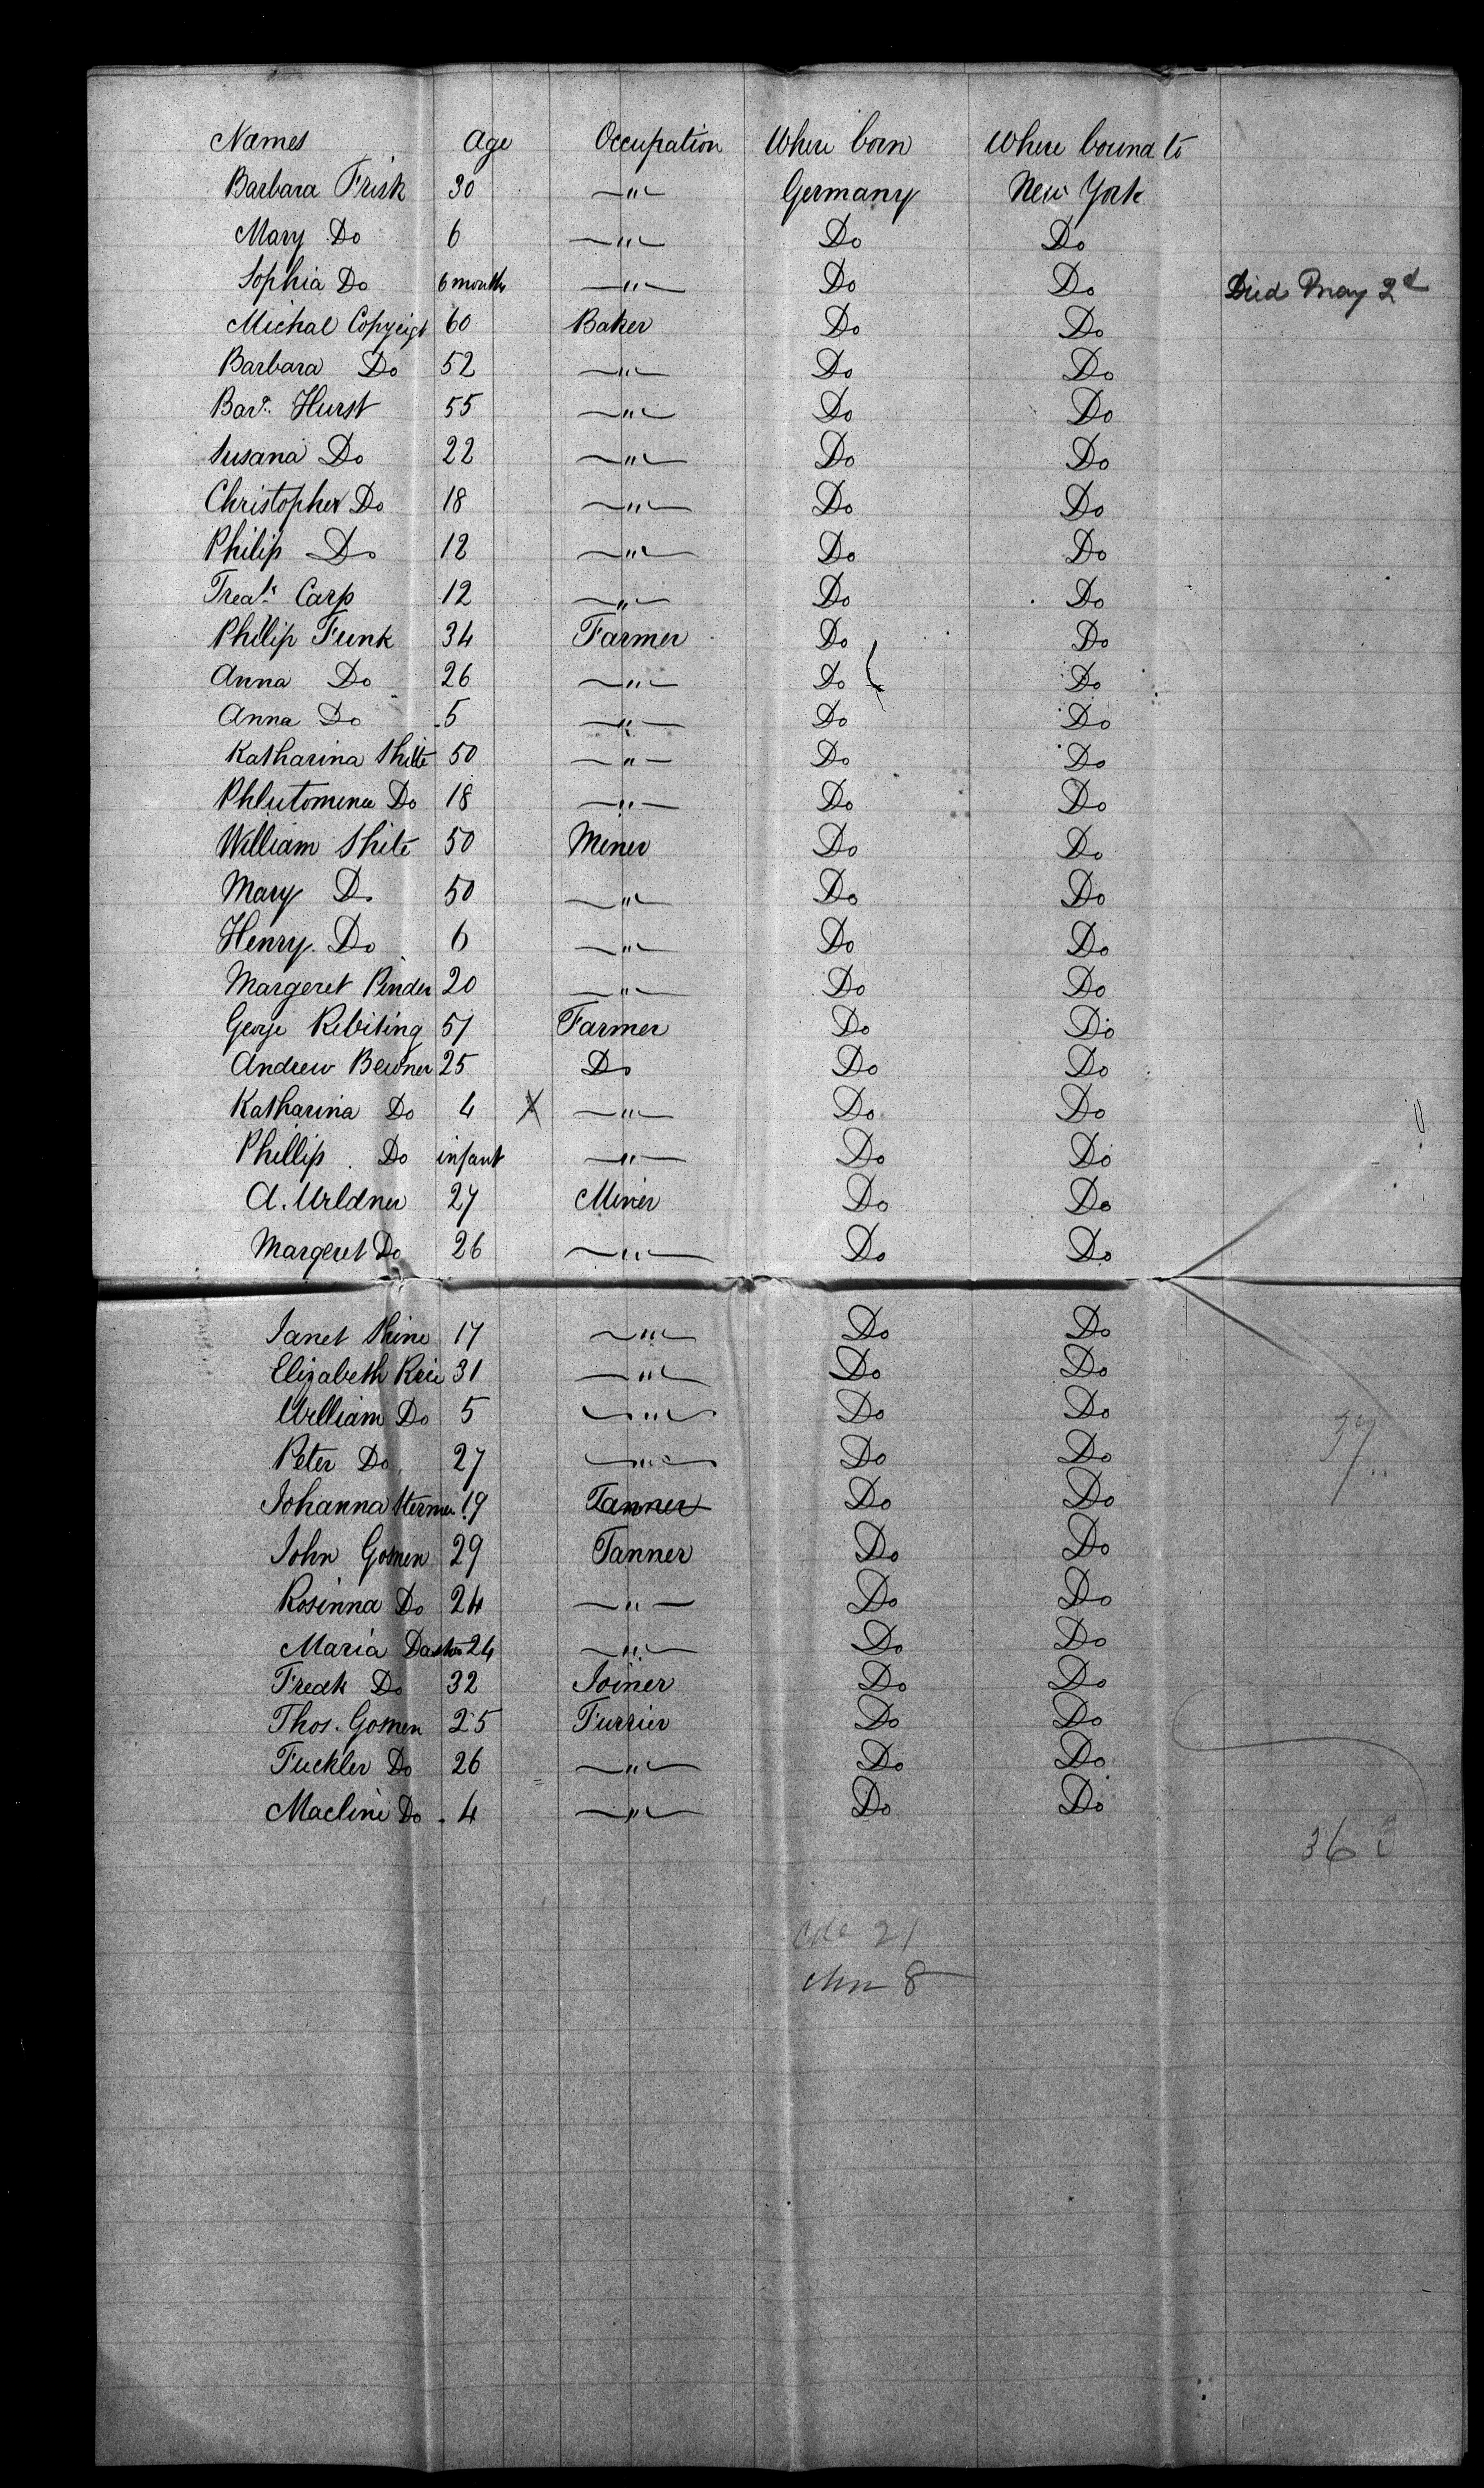 Names Age Occupation Where born Where bound to
Barbara Frisk 30 —"— Germany New York
Mary Do 6 —"— Do Do
Sophia Do 6 months —"— Do Do Died May 2d
Michal 60 Baker Do Do
Barbara Do 52 —"— Do Do
Hurst 55 —"— Do Do
Susana Do 22 —"— Do Do
Christopher Do 18 —"— Do Do
Philip Do 12 —"— Do Do
Carp 12 —"— Do Do
Phillip Funk 34 Farmer Do Do
Anna Do 26 —"— Do Do
Anna Do 5 —"— Do Do
Katharina 50 —"— Do Do
Do 18 —"— Do Do
William Shite 50 Miner Do Do
Mary Do 50 —"— Do Do
Henry Do 6 —"— Do Do
Margeret Pinder 20 —"— Do Do
George Ribiting 51 Farmer Do Do
Andrew 25 Do Do Do
Katharina Do 4 X —"— Do Do
Phillip Do infant —"— Do Do
A. 27 Miner Do Do
Margeret Do 26 —"— Do Do
Janet Shine 17 —"— Do Do
Elizabeth 31 —"— Do Do
William Do 5 —"— Do Do
Peter Do 27 —"— Do Do
Johanna 19 Tanner Do Do
John Gomen 29 Tanner Do Do
Rosinna Do 24 —"— Do Do
Maria 24 —"— Do Do
Fredk Do 32 Joiner Do Do
Thos. Gomen 25 Furrier Do Do
Fuckler Do 26 —"— Do Do
Maclini Do 4 —"— Do Do
37
36
21
8